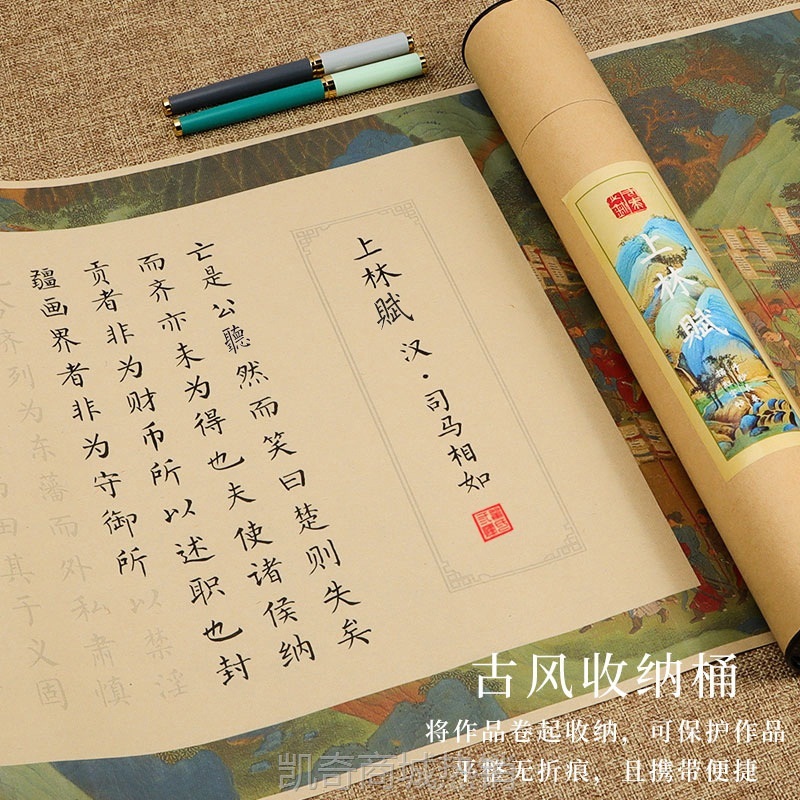 上林賦
上林賦 汉·司马相如
亡是公聽然而笑曰楚则失矣
而齐亦未为得也夫使诸侯纳
贡者非为财币所以述职也封
疆画界者非为守御所以禁淫
今齐列为东藩而外私肃慎
田其于义固
古风收纳桶
将作品卷起收纳，可保护作品
平整无折痕，且携带便捷
凯奇商城